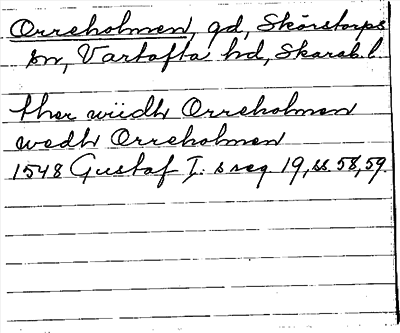 Orreholmen, gd, Skörstorps
sn, Vartofta hd, Skarab. l.
ther wiidh Orreholmen
wedh Orreholmen
1548 Gustaf I:s reg. 19, ss. 58, 59.